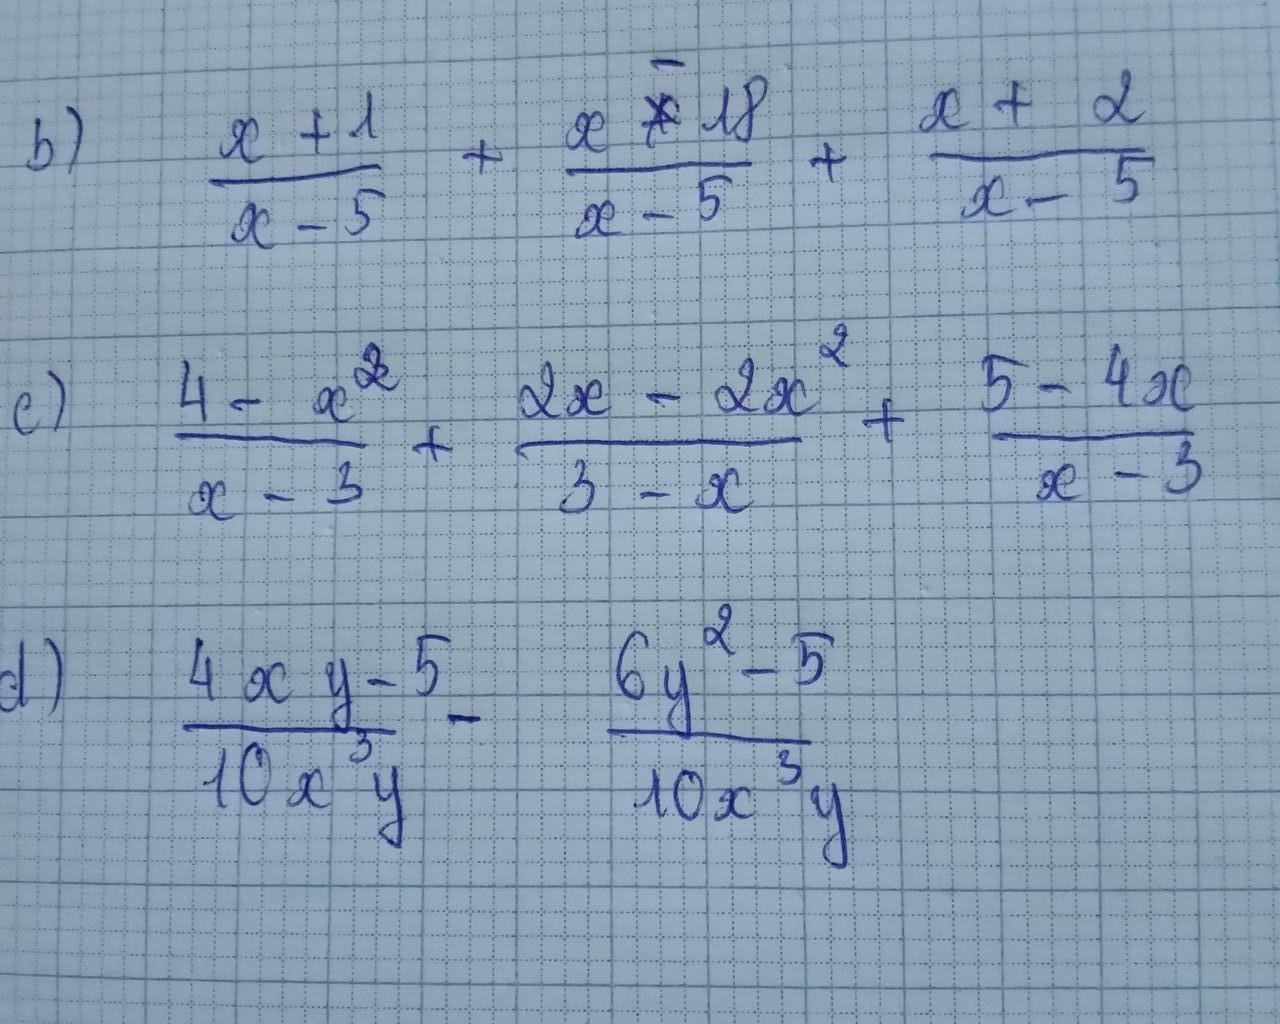 b) (x + 1)/(x - 5) + (x - 18)/(x - 5) + (x + 2)/(x - 5)
c) (4 - x²)/(x - 3) + (2x - 2x²)/(3 - x) + (5 - 4x)/(x - 3)
d) (4xy - 5)/(10x³y) - (6y² - 5)/(10x³y)